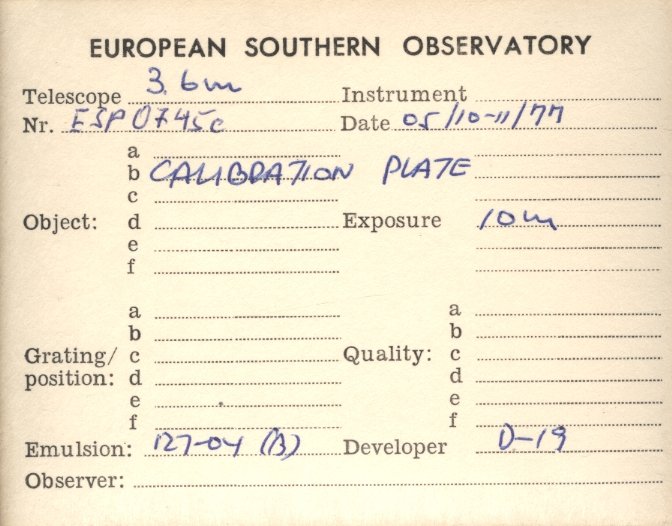 EUROPEAN SOUTHERN OBSERVATORY
Telescope 3.6m Instrument
Nr. ESP0745c Date 05/10-11/77
a
b CALIBRATION PLATE
c
Object: d Exposure 10m
e
f
a a
b b
Grating/ c Quality: c
position: d d
e e
f f
Emulsion: 127-04 (B) Developer D-19
Observer: